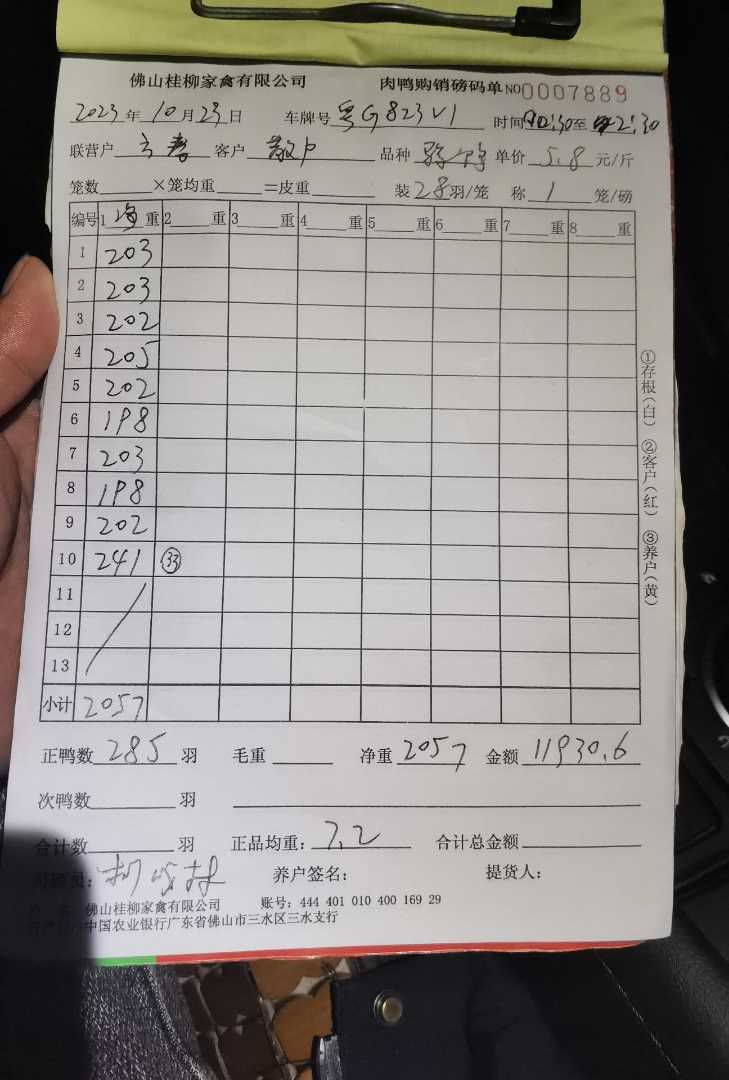 佛山桂柳家禽有限公司 肉鸭购销磅码单 NO 0007889
2023年10月23日 车牌号 粤G823V1 时间 至 2:30
联营户 客户 散户 品种 单价 5.8 元/斤
笼数 ×笼均重 =皮重 装28羽/笼 称1笼/磅
编号 1 净重 2 重 3 重 4 重 5 重 6 重 7 重 8 重
1 203
2 203
3 202
4 205
5 202
6 198
7 203
8 198
9 202
10 241 33
11
12
13
小计 2057
正鸭数 285 羽 毛重 净重 2057 金额 11930.6
次鸭数 羽
合计数 羽 正品均重: 7.2 合计总金额
司磅员: 养户签名: 提货人:
佛山桂柳家禽有限公司 账号: 444 401 010 400 169 29
中国农业银行广东省佛山市三水区三水支行
①存根(白) ②客户(红) ③养户(黄)